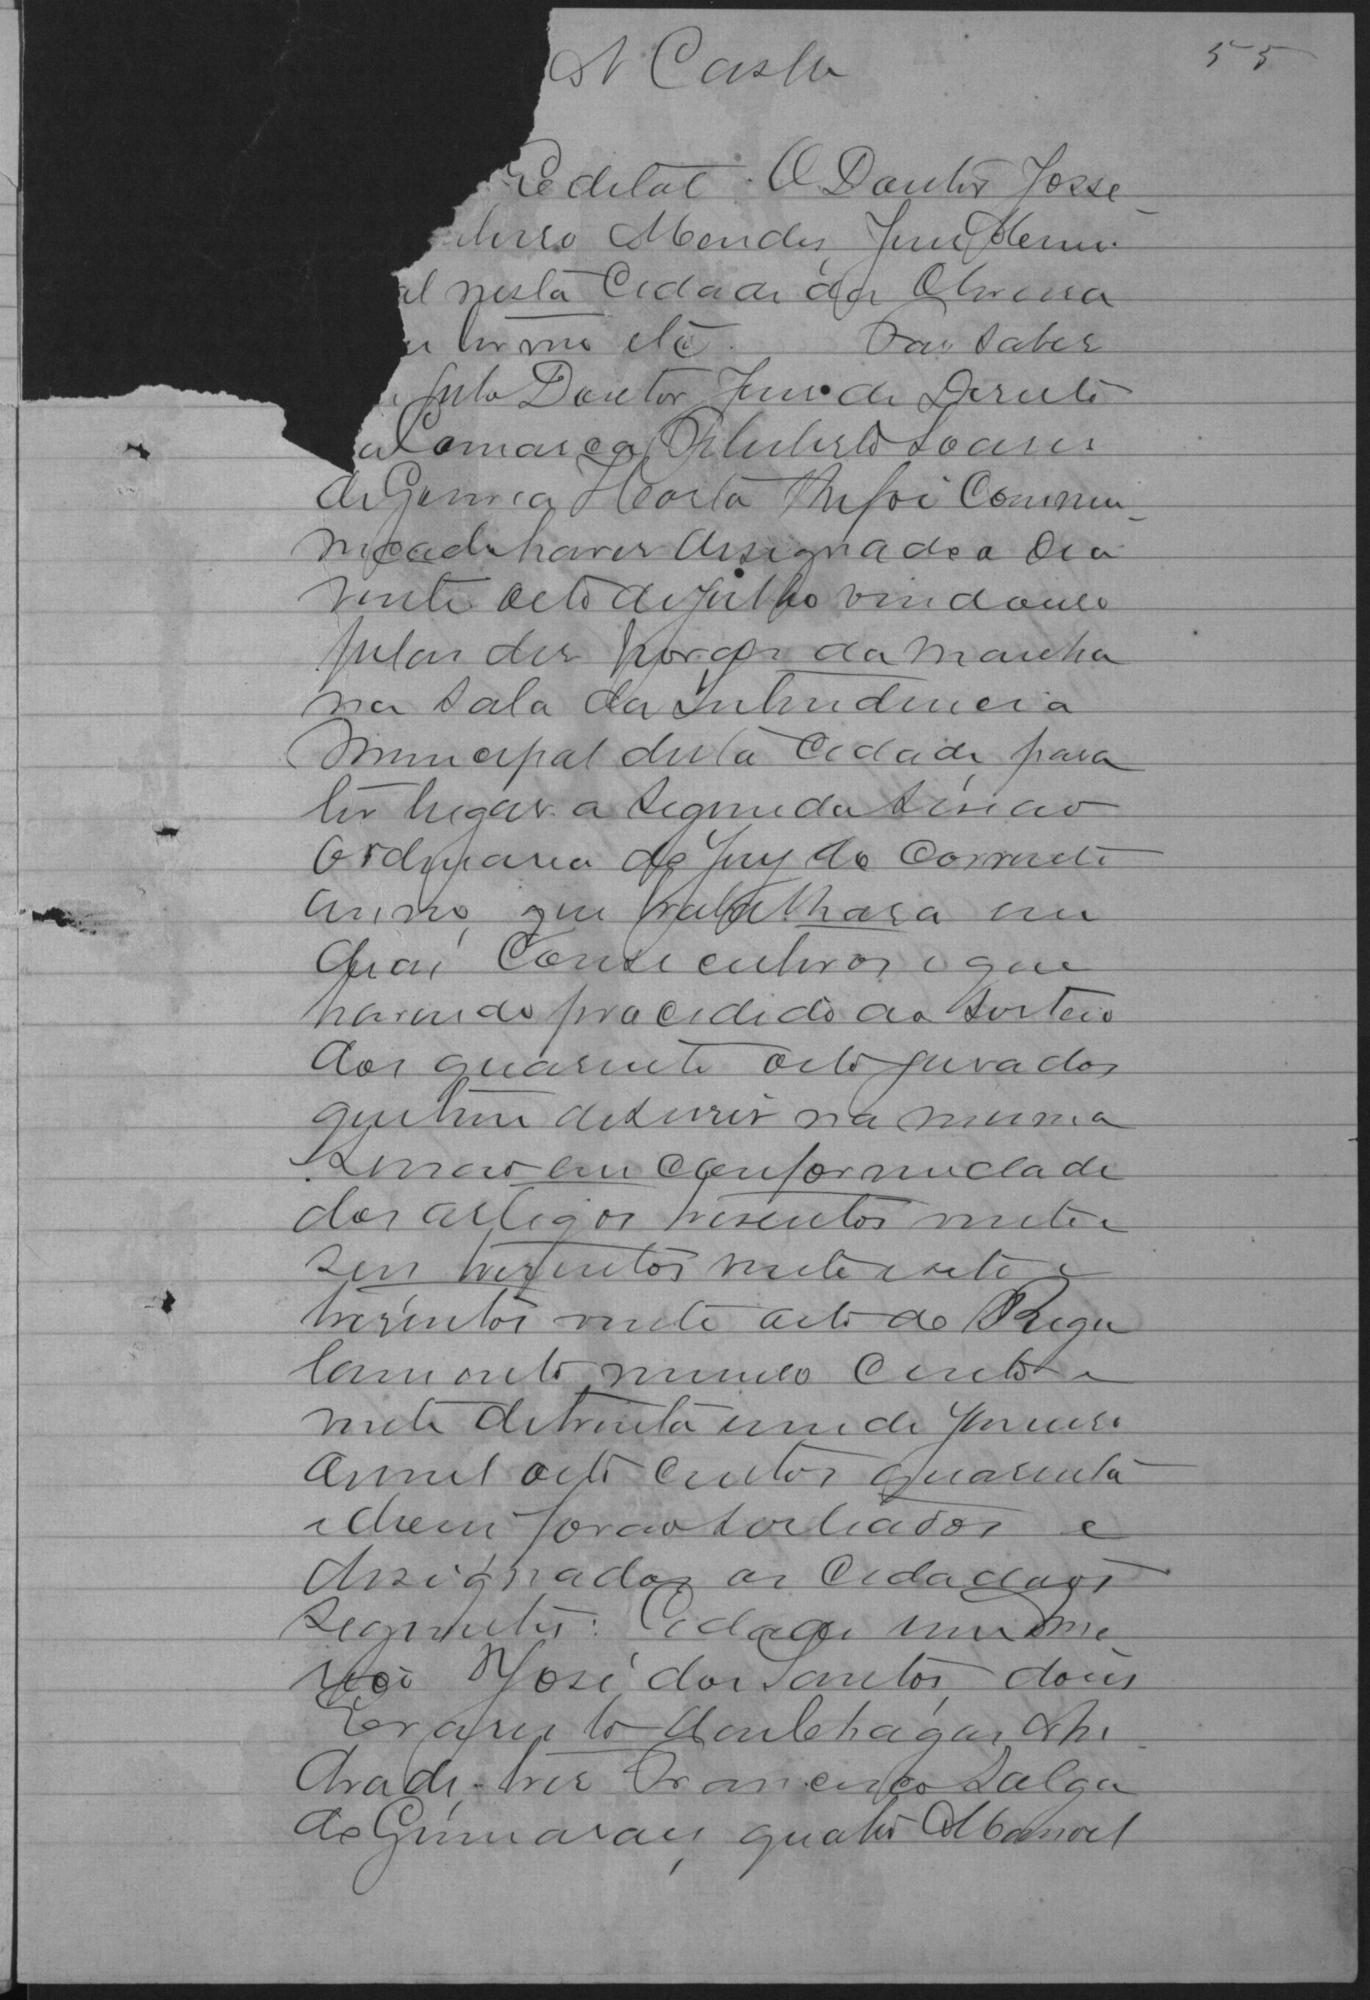 55
Edital. O Doutor José
Mendes, Juiz Munici-
al nesta Cidade da Oliveira
termo etc. Faz saber
pelo Doutor Juiz de Direito
a Comarca, Philiberto Soares
de Gouvea Horta lhe foi Commu-
nicado haver designado o dia
vinte oito de Julho vindouro
pelas dez horas da manhã
na sala da Intendencia
Municipal desta Cidade, para
ter lugar a segunda sessão
Ordinaria do Jury do corrente
anno, que trabalhará em
dias consecutivos e que
havendo procedido ao sorteio
dos quarenta oito jurados
que tem de servir na mesma
sessão em conformidade
dos artigos trezentos vinte e
seis trezentos vinte e sete e
trezentos vinte oito do Regu
lamento numero cento e
vinte de trinta um de Janeiro
de mil oito centos quarenta
e dous forão sorteados e
designados os Cidadãos
seguintes: Cidade um
José dos Santos, dous
Gonzaga An-
drade, tres Francisco Salga
do Guimarães, quatro Manoel